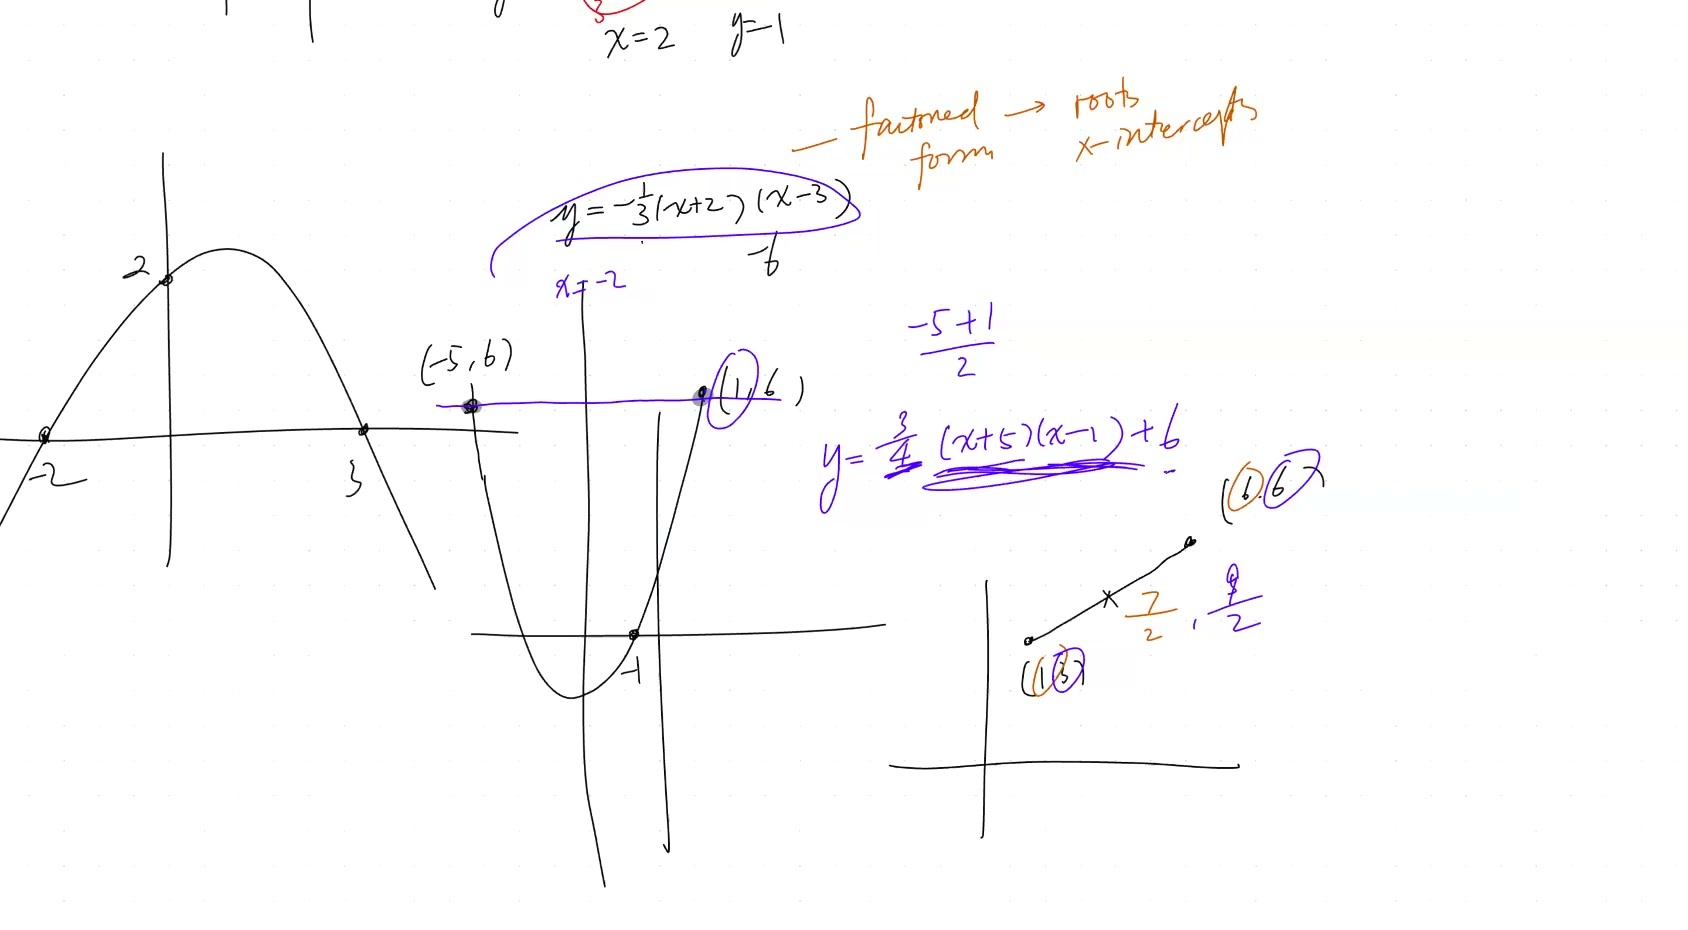 3
x=2 y=-1
– factored → roots
form x-intercepts
y = -1/3 (x+2) (x-3)
-6
x=-2
2
-2
3
(-5, 6)
(1, 6)
-1
-5+1
2
y = 3/4 (x+5)(x-1) + 6
(6, 6)
7/2 , 9/2
(1, 3)